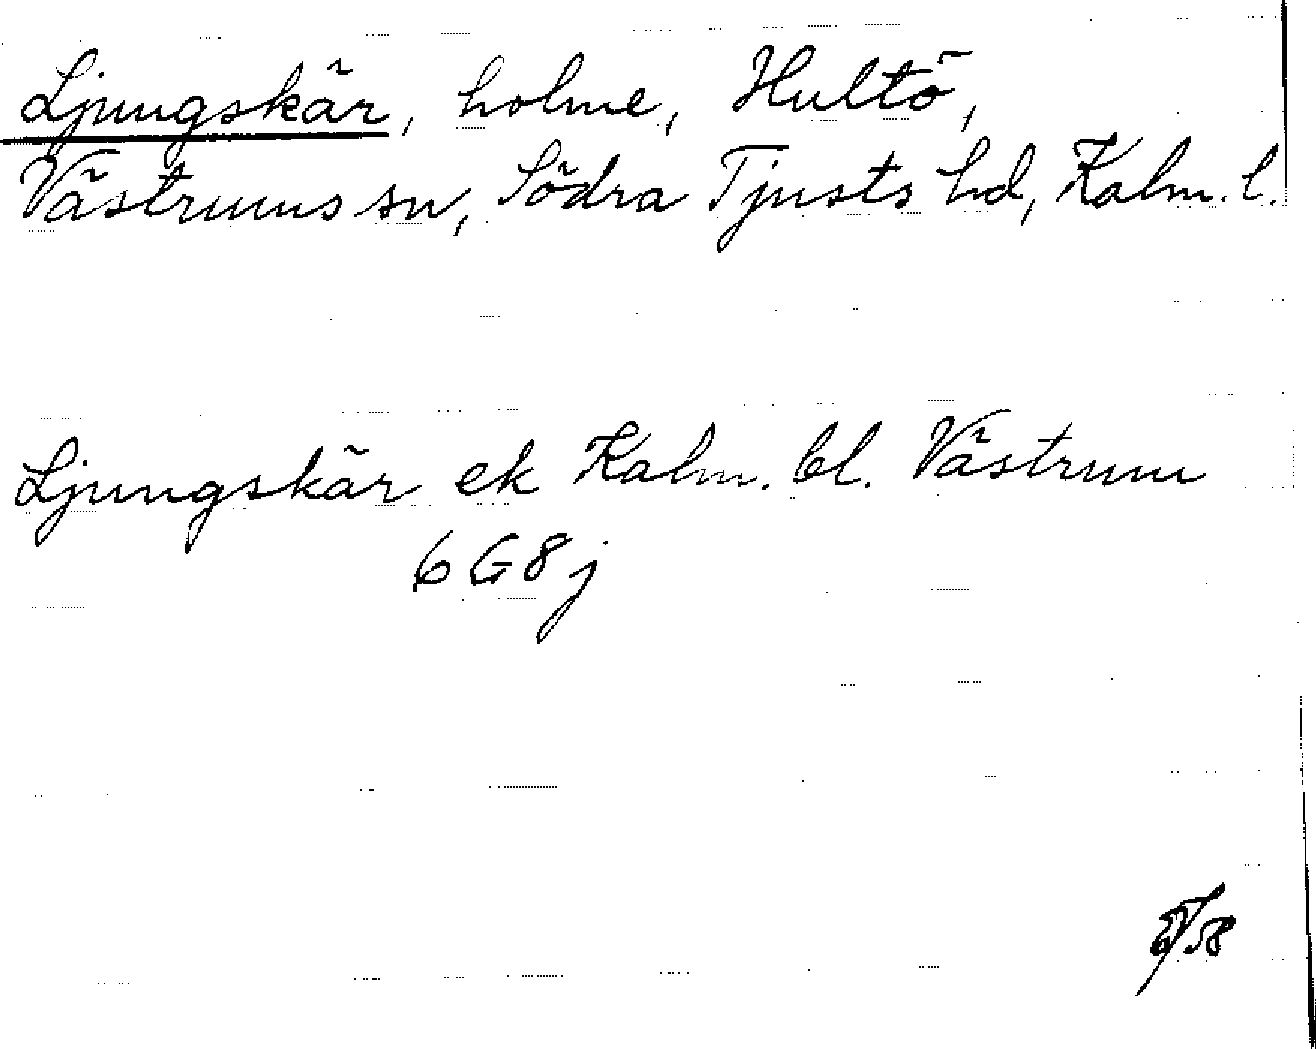 Ljungskär, holme, Hultö,
Västrums sn, Södra Tjusts hd, Kalm. l.
Ljungskär ek Kalm. bl. Västrum
6G8j